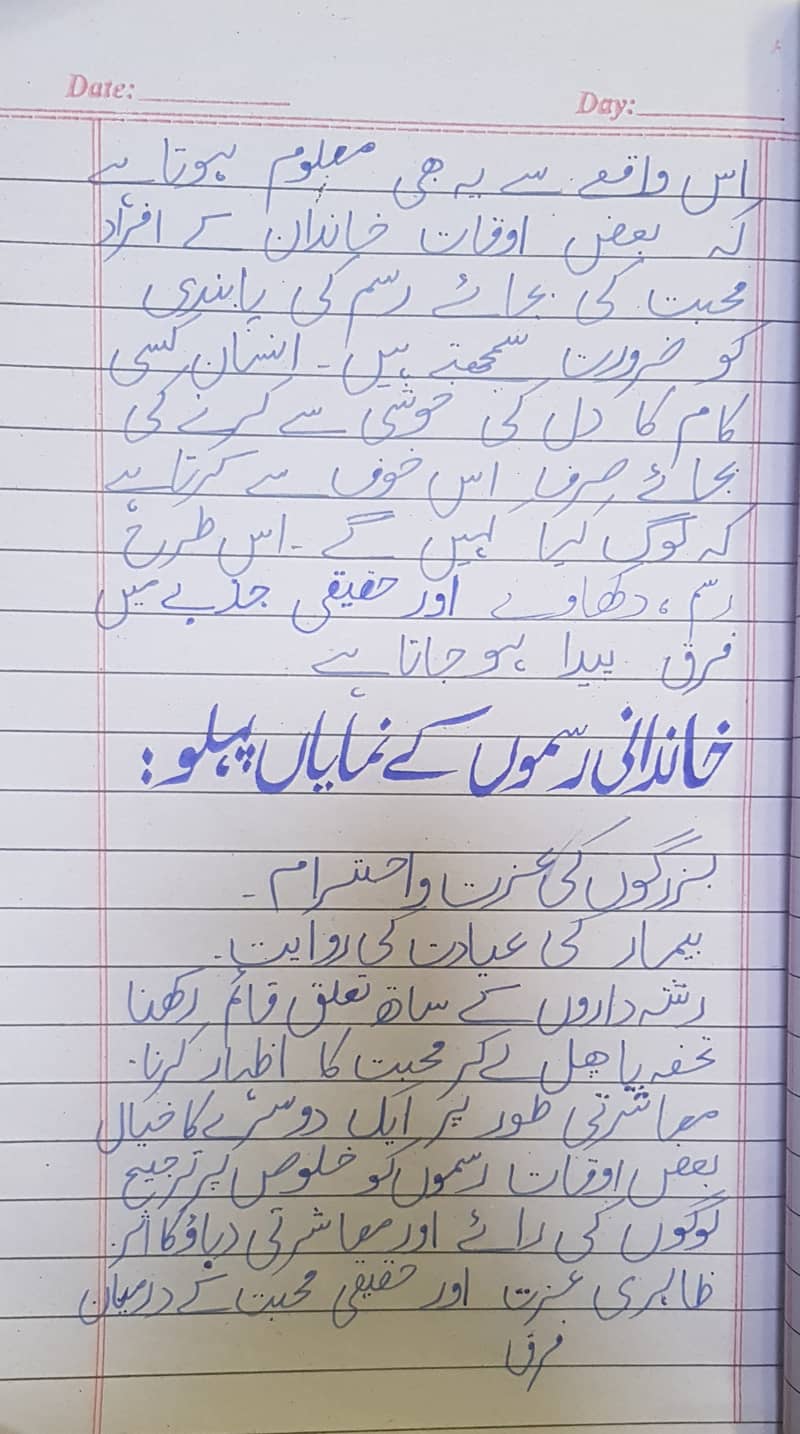 Date:
Day:
اس واقعے سے یہ بھی معلوم ہوتا ہے
کہ بعض اوقات خاندان کے افراد
محبت کی بجائے رسم کی پابندی
کو ضرورت سمجھتے ہیں۔ انسان کسی
کام کا دل کی خوشی سے کرنے کی
بجائے صرف اس خوف سے کرتا ہے
کہ لوگ کیا کہیں گے۔ اس طرح
رسم، دکھاوے اور حقیقی جذبے میں
فرق پیدا ہو جاتا ہے
خاندانی رسموں کے نمایاں پہلو:
بزرگوں کی عزت و احترام۔
بیمار کی عیادت کی روایت۔
رشتہ داروں کے ساتھ تعلق قائم رکھنا
تحفہ یا پھل لے کر محبت کا اظہار کرنا۔
معاشرتی طور پر ایک دوسرے کا خیال
بعض اوقات رسموں کو خلوص پر ترجیح
لوگوں کی رائے اور معاشرتی دباؤ کا اثر
ظاہری عزت اور حقیقی محبت کے درمیان
فرق